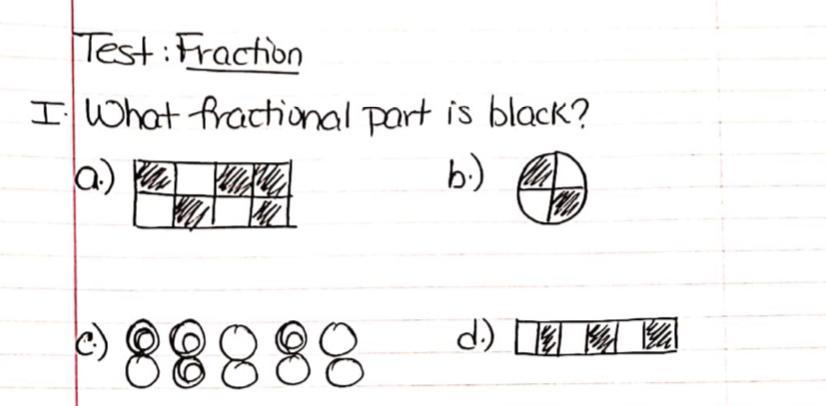 Test: Fraction
I. What fractional part is black?
a.) b.)
c.) d.)